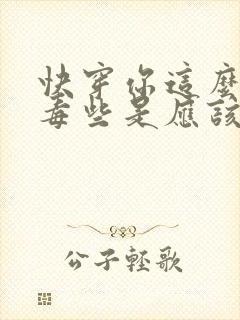 快穿你這麼
毒些是應該
公子輕歌